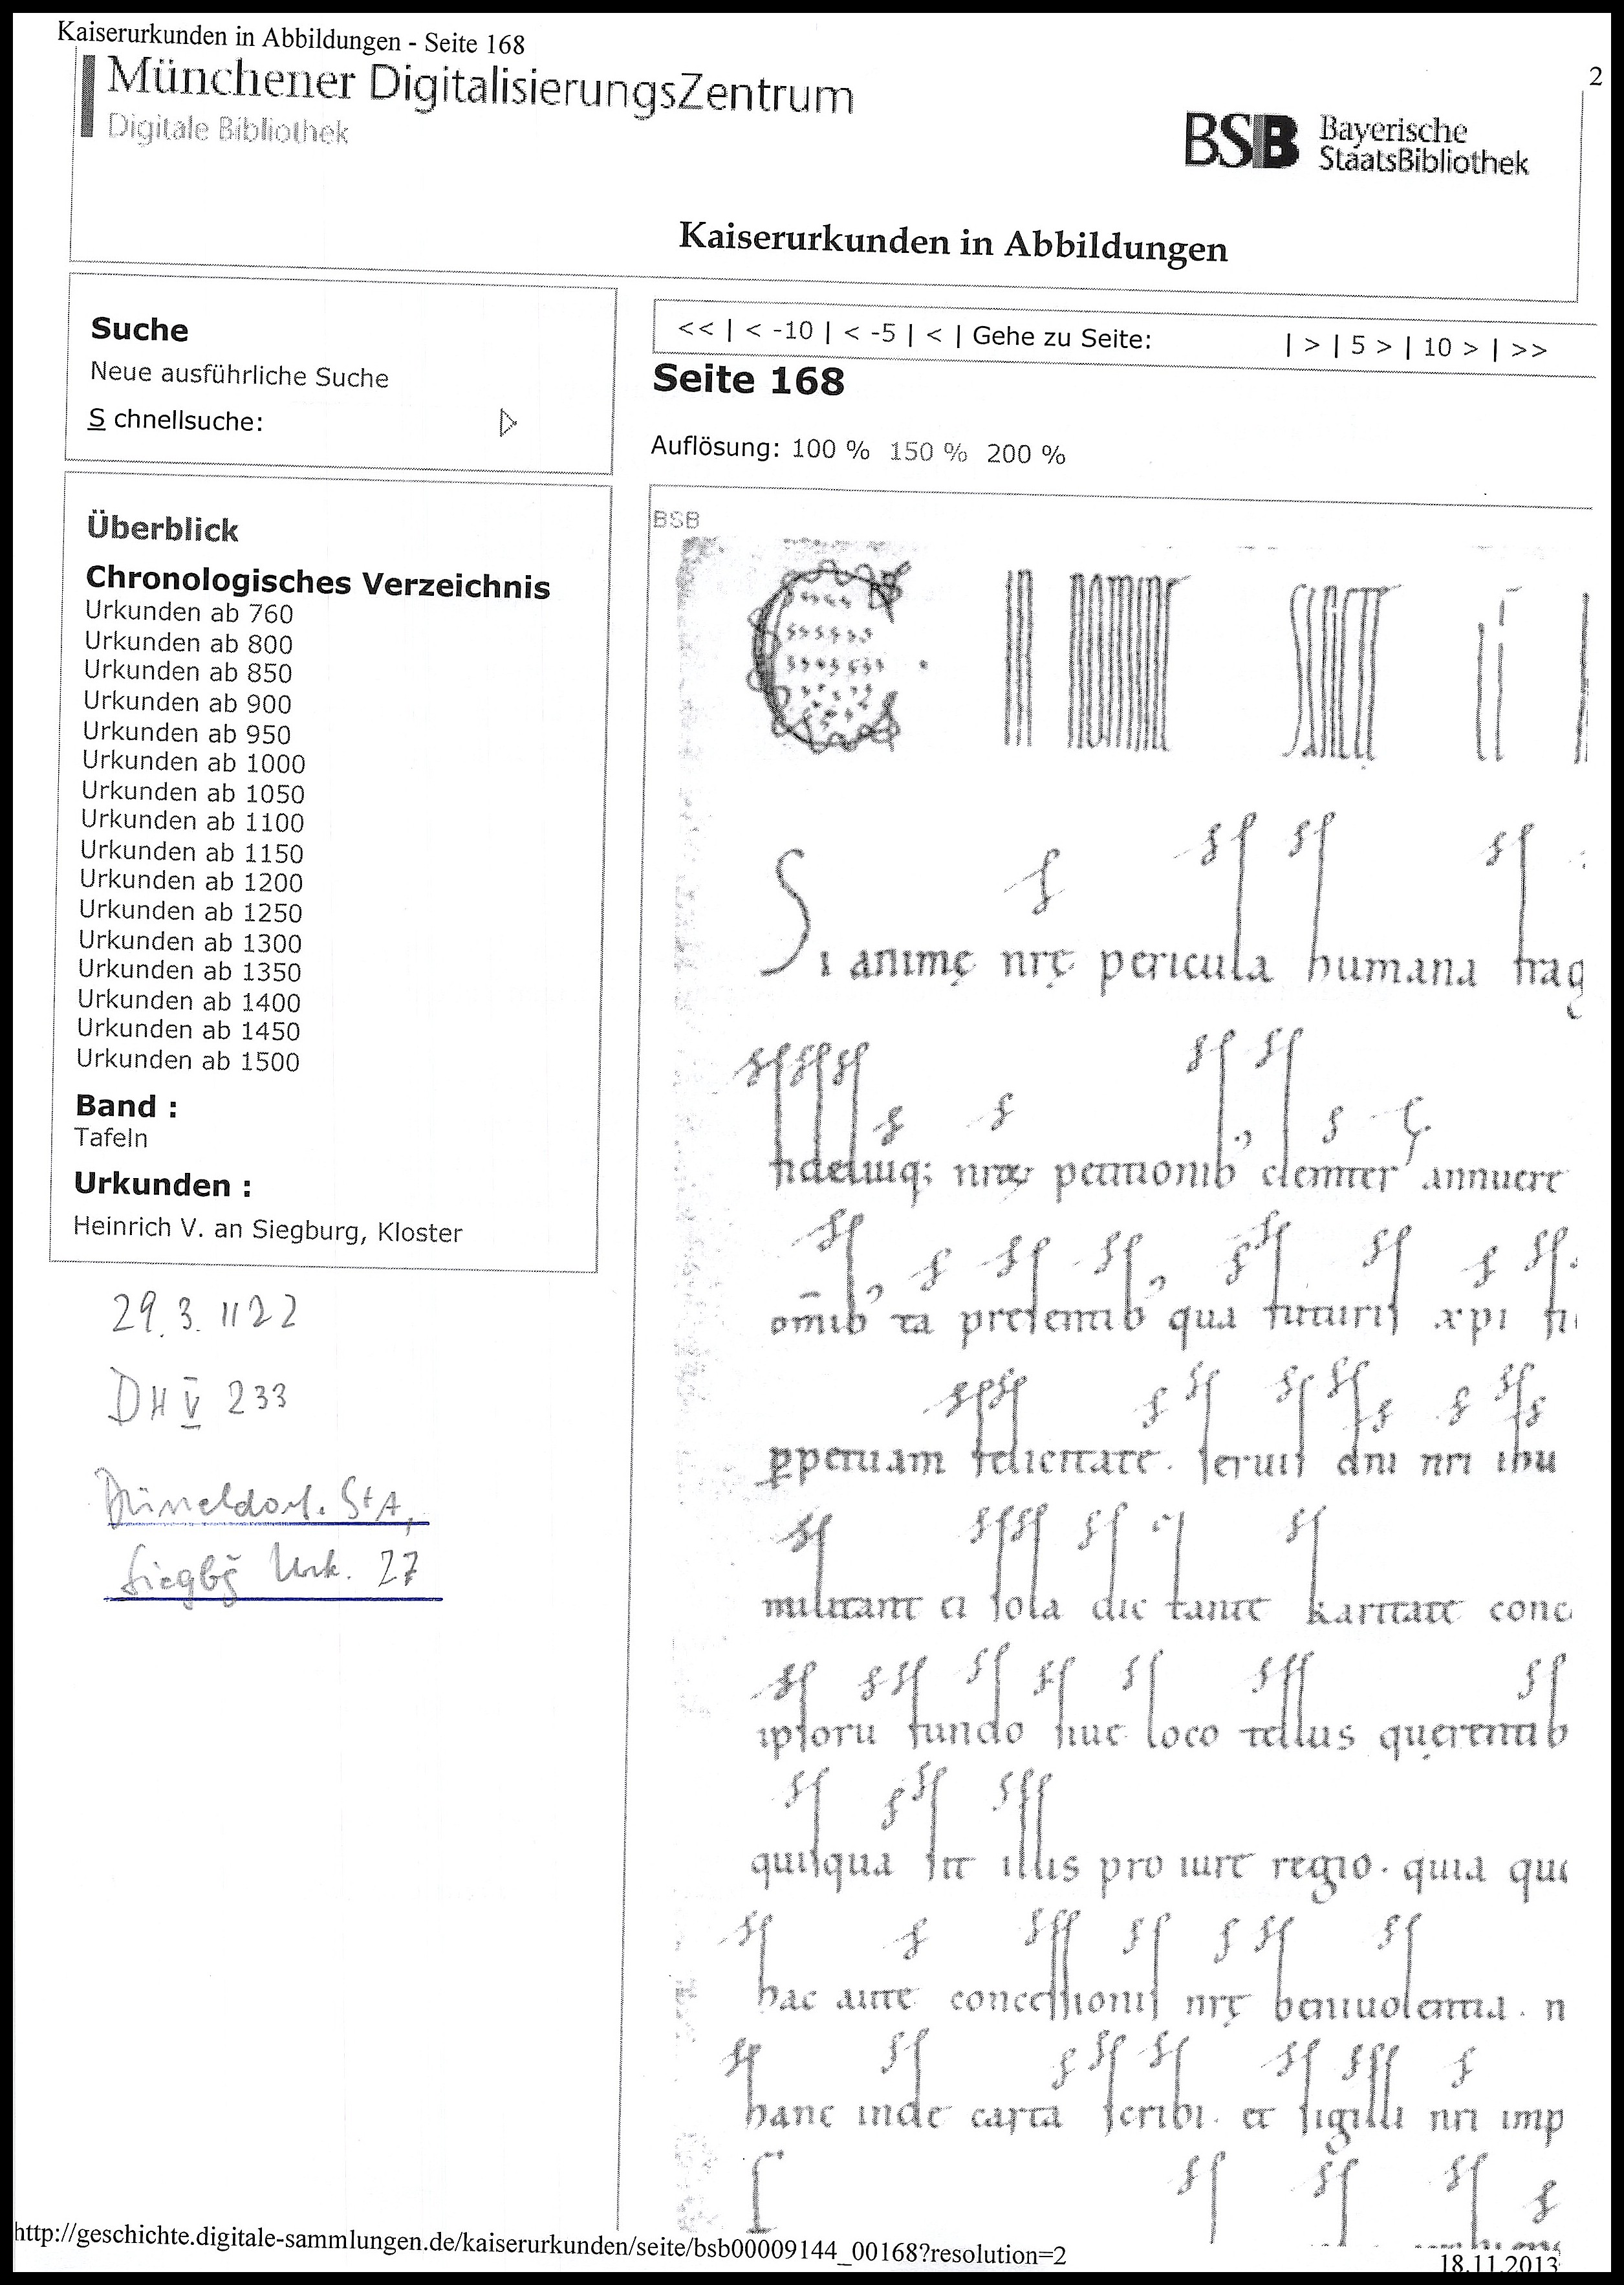 Kaiserurkunden in Abbildungen - Seite 168
2
Münchener DigitalisierungsZentrum
Digitale Bibliothek
BSB Bayerische
StaatsBibliothek
Kaiserurkunden in Abbildungen
Suche
Neue ausführliche Suche
S chnellsuche:
Überblick
Chronologisches Verzeichnis
Urkunden ab 760
Urkunden ab 800
Urkunden ab 850
Urkunden ab 900
Urkunden ab 950
Urkunden ab 1000
Urkunden ab 1050
Urkunden ab 1100
Urkunden ab 1150
Urkunden ab 1200
Urkunden ab 1250
Urkunden ab 1300
Urkunden ab 1350
Urkunden ab 1400
Urkunden ab 1450
Urkunden ab 1500
Band :
Tafeln
Urkunden :
Heinrich V. an Siegburg, Kloster
29.3. 1122
DH V 233
Düsseldorf. StA,
Siegbg Urk. 27
<< | < -10 | < -5 | < | Gehe zu Seite: | > | 5 > | 10 > | >>
Seite 168
Auflösung: 100 % 150 % 200 %
BSB
C. IN nomine sancte
Si animę nrę pericula humana frag
fideliuq; petitionib' clemter annuere
omib' ta presentib' qua futuris xpi
ꝑpetuam felicitate. seruis dni nri ihu
militant ei sola dictante karitate conc
ipsoru fundo siue loco tellus querentib
quisqua sit illis pro iure regio. quia
hac aute concessionis nrę beniuolentia. n
hanc inde carta scribi. et sigilli nri imp
http://geschichte.digitale-sammlungen.de/kaiserurkunden/seite/bsb00009144_00168?resolution=2
18.11.2013